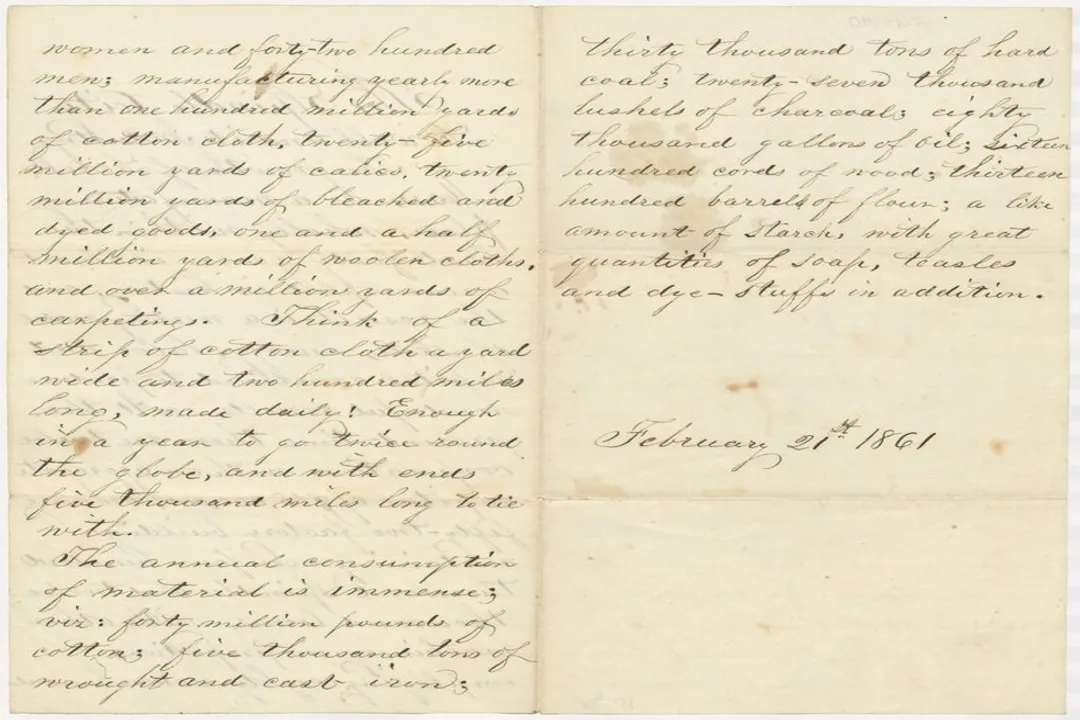 women and forty-two hundred
men; manufacturing yearly more
than one hundred million yards
of cotton cloth, twenty-five
million yards of calico, twenty
million yards of bleached and
dyed goods, one and a half
million yards of woolen cloths,
and over a million yards of
carpetings. Think of a
strip of cotton cloth a yard
wide and two hundred miles
long, made daily! Enough
in a year to go twice round
the globe, and with ends
five thousand miles long to tie
with.
The annual consumption
of material is immense;
viz: forty million pounds of
cotton; five thousand tons of
wrought and cast iron;
thirty thousand tons of hard
coal; twenty-seven thousand
bushels of charcoal; eighty
thousand gallons of oil; sixteen
hundred cords of wood; thirteen
hundred barrels of flour; a like
amount of starch, with great
quantities of soap, teasles
and dye-stuffs in addition.
February 21st 1861